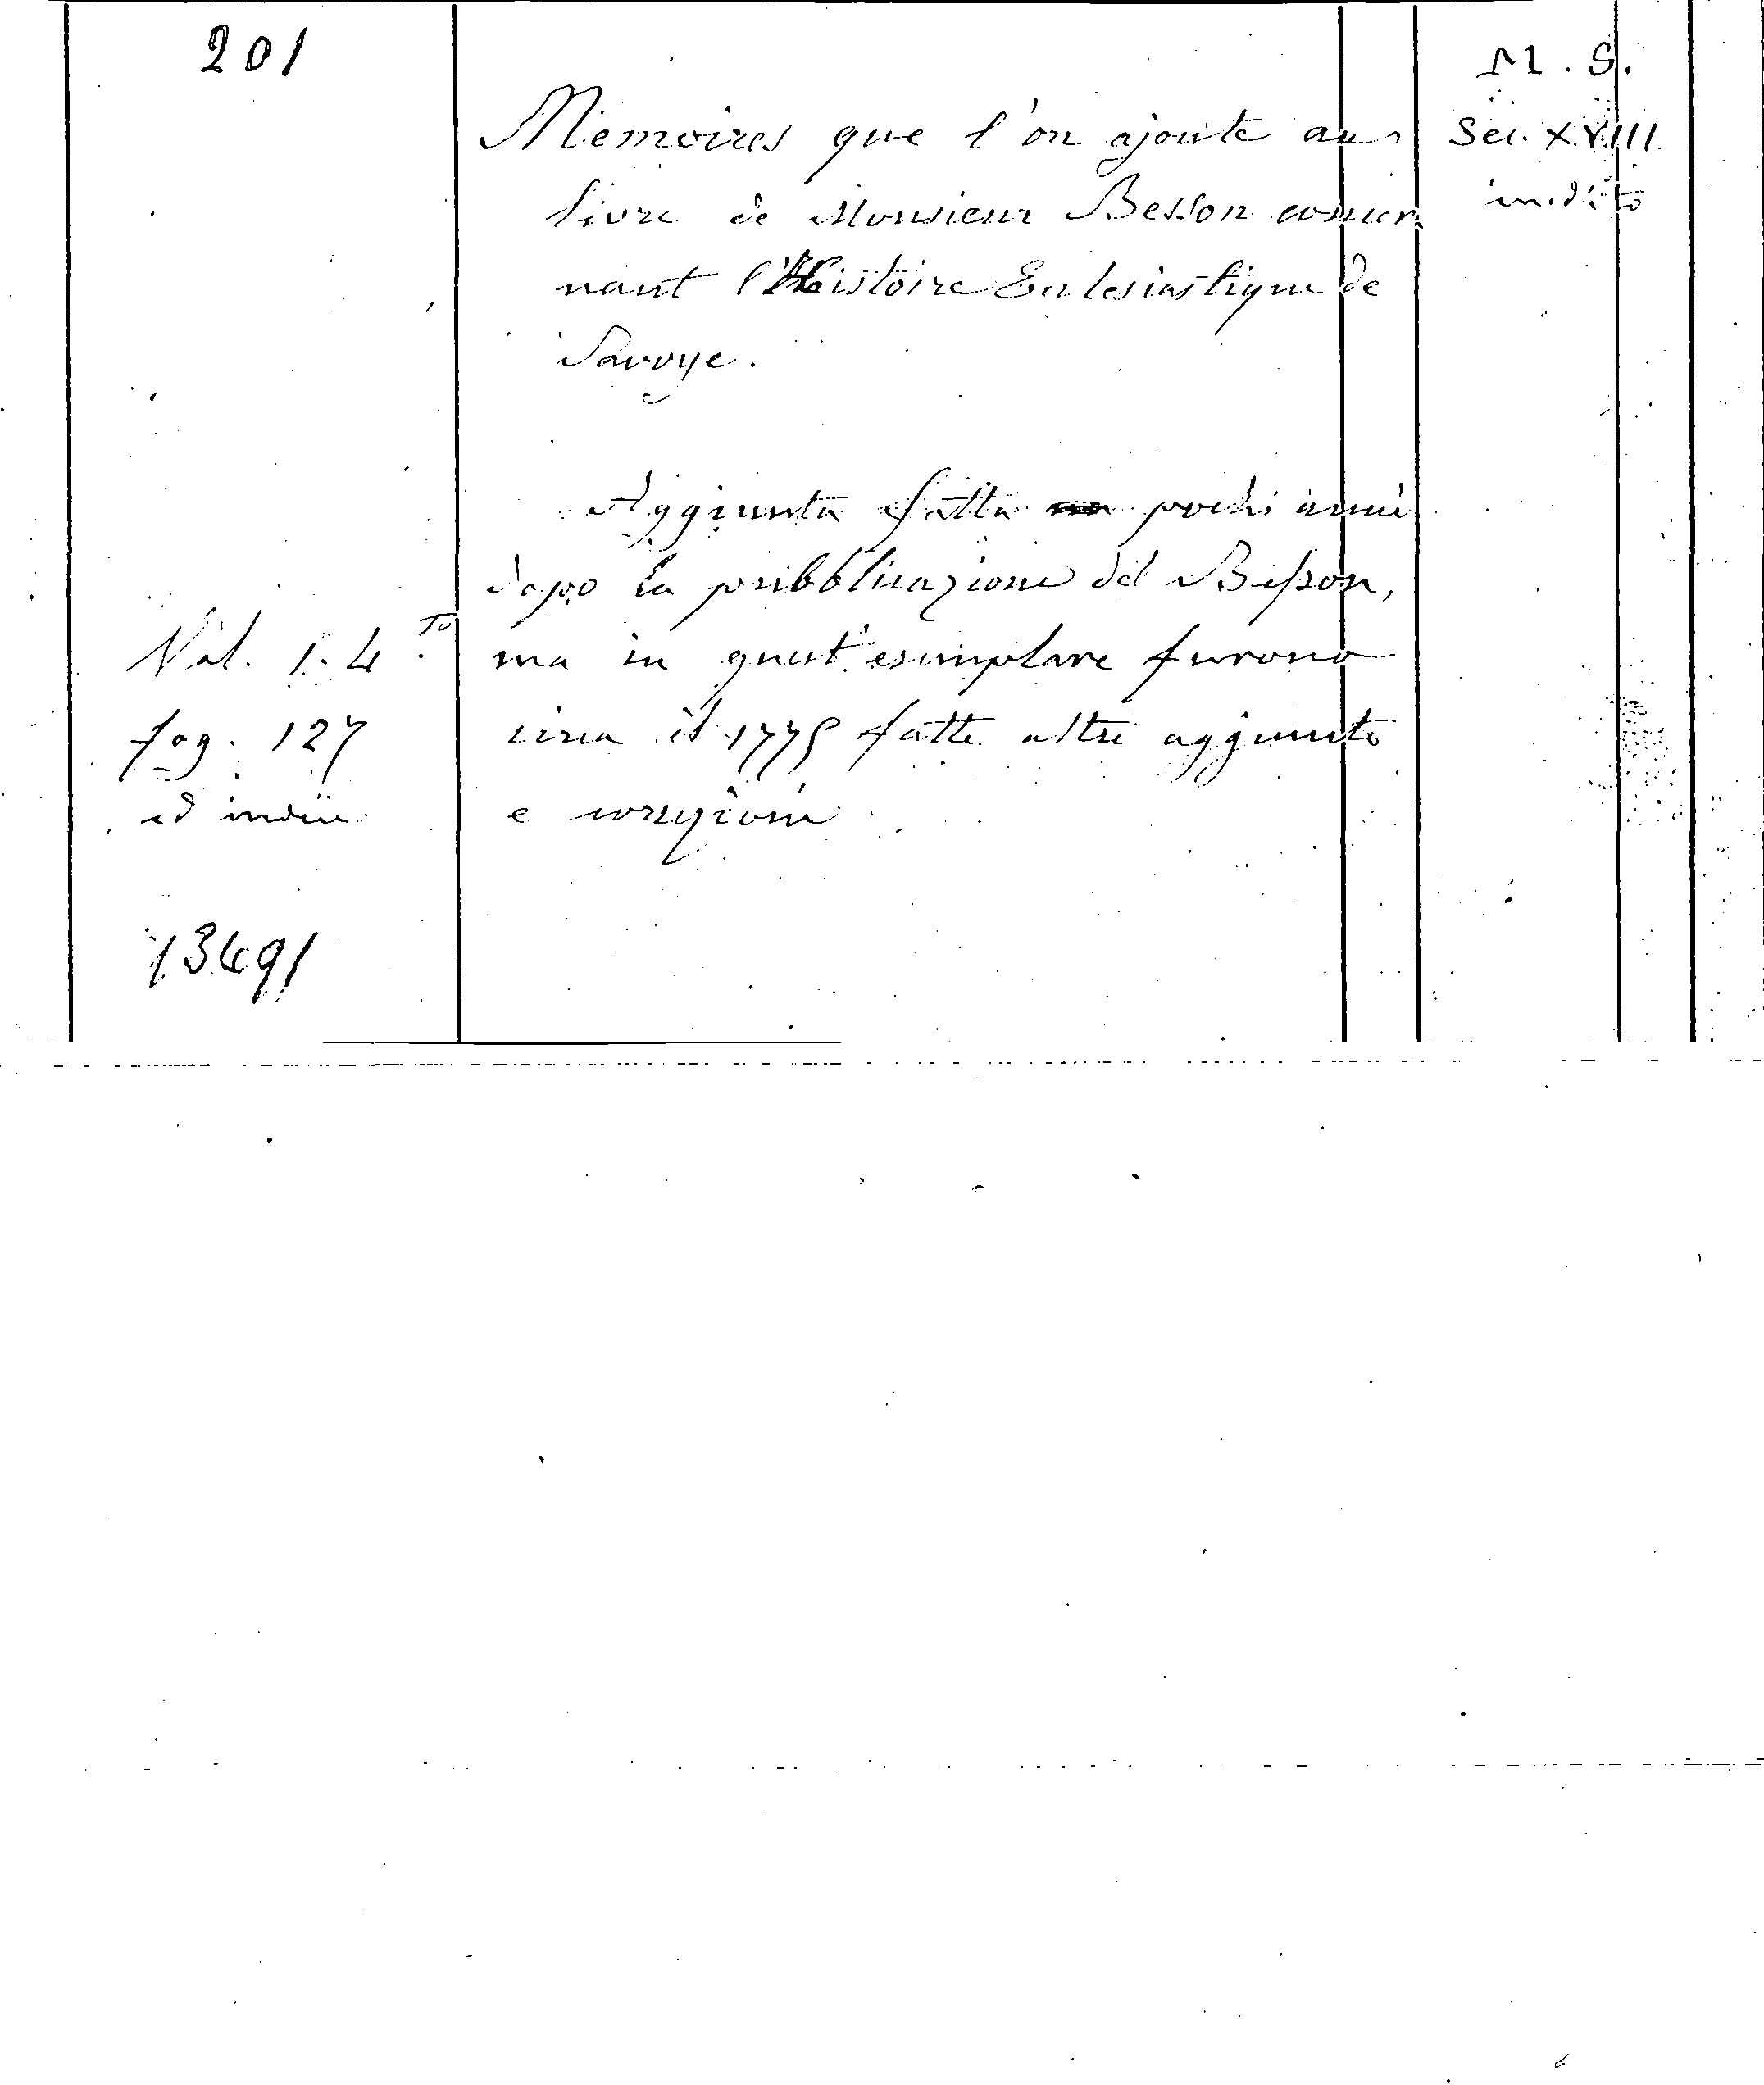 201
Memoires que l'on ajoute au
livre de Monsieur Besson concer
nant l'Histoire Eclesiastique de
Savoye.
M. S.
Sec. XVIII
inedito
Aggiunta fatta pochi anni
dopo la pubblicazione del Besson,
ma in quest'esemplare furono
circa il 1775 fatte altre aggiunte
e correzioni
Vol. 1. 4.to
fog. 127
ed indice
13491